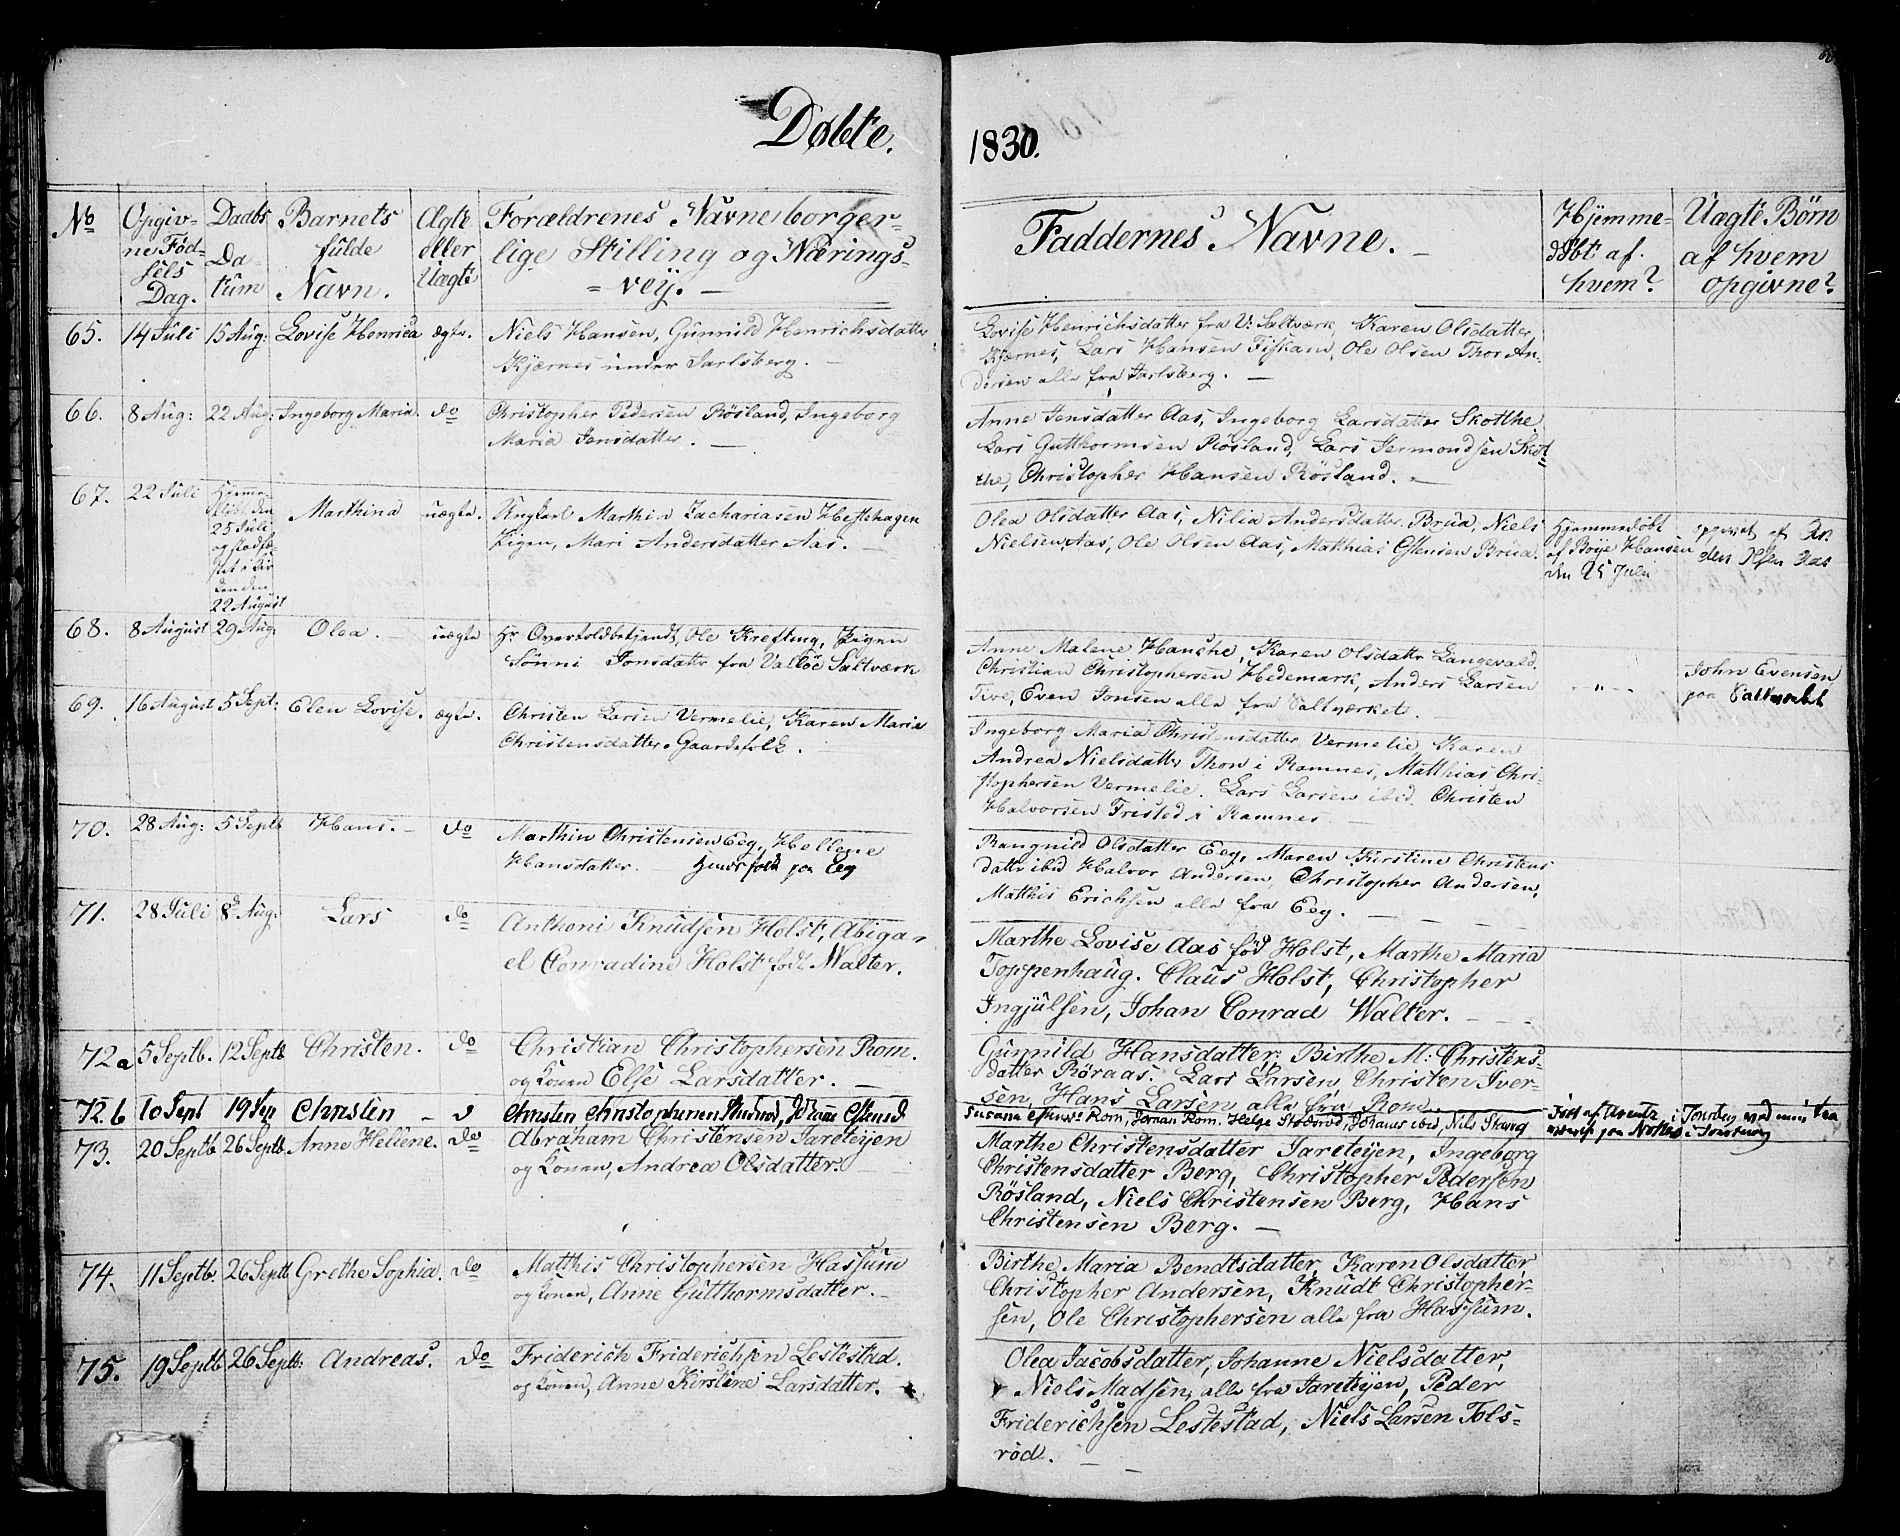 Døbte.
1830.
No
Opgiv-
ne Fød-
sels
Dag.
Daabs
Da-
tum
Barnets
fulde
Navn.
Ægte
eller
Uægte
Forældrenes Navne borger-
lige Stilling og Nærings-
vej. —
Faddernes Navne. —
Hjemme-
døbt af
hvem?
Uægte Børn
af hvem
opgivne?
65. 14 Juli 15 Aug: Lovise Henrica ægte. Niels Hansen, Gunnild Henrichsdatter
Kjærnes under Jarlsberg. —
Lovise Henrichsdatter fra V: Saltværk, Karen Olsdatter
Kjærnes, Lars Hansen Fiskam, Ole Olsen Thor An-
dersen alle fra Jarlsberg. —
66. 8 Aug: 22 Aug: Ingeborg Maria. do Christopher Pedersen Røsland, Ingeborg
Maria Jensdatter. —
Anne Jensdatter Aas, Ingeborg Larsdatter Skotthe
Lars Gutthormsen Røsland, Lars Jermondsen Skot-
the, Christopher Hansen Røsland. —
67. 22 Juli Hjemme-
døbt den
25 Juli
og stadfæ-
stet i Kir
ken den
22 August
Marthina uægte. Ungkarl Marthin Zachariasen Hestehagen
Pigen, Mari Andersdatter Aas. —
Olea Olsdatter Aas, Nilia Andersdatter Brua, Niels
Nielsen, Aas, Ole Olsen Aas, Matthias Estensen Brua.
Hjemmedøbt
af Boije Hansen
den 25 Juli
opgivet af
Olsen Aas
68. 8 August 29 Aug: Olea. — uægte Hr Overtoldbetjendt, Ole Krefting, Pigen
Sønni Jonsdatter fra Valløe Saltværk
Anne Malene Hansche, Karen Olsdattr Langevald,
Christian Christophersen Hedemark, Anders Larsen
Tive, Even Jonsen alle fra Saltværket.
- " -
John Evensen
paa Saltværket
69. 16 August 5 Sept: Elen Lovise. ægte. Christen Larsen Vermelie, Karen Maria
Christensdatter Gaardsfolk.
Ingeborg Maria Christensdatter Vermelie, Karen
Andrea Nielsdatter Thon i Ramnes, Matthias Chri-
stophersen Vermelie, Lars Larsen ibid. Christen
Halvorsen Fristed i Ramnes
70. 28 Aug: 5 Septb Hans. — do Marthin Christensen Eeg, Hellene
Hansdatter. — Huusfolk paa Eeg
Rangnild Olsdatter Eeg, Maren Kirstine Christens
datter ibid Halvor Andersen, Christopher Andersen,
Matthis Erichsen alle fra Eeg. —
71. 28 Juli 8d Aug: Lars do Anthoni Knudsen Holst, Abiga-
el Conradine Holst født Walter.
Marthe Lovise Aas fød Holst, Marthe Maria
Toppenhaug. Claus Holst, Christopher
Ingjulsen, Johan Conrad Walter. —
72a 5 Septb. 12 Septb Christen. do Christian Christophersen Rom.
og Konen Else Larsdatter. —
Gunnild Hansdatter, Birthe M: Christens-
datter Røraas. Lars Larsen, Christen Iver-
sen, Hans Larsen alle fra Rom.
72.b 10 Sept 19 Sep Christen - d Christen Christophersen
Rom, Jonas Rom, Helge Stodsrød, Johans ibid, Nils Stang
73. 20 Septb 26 Septb. Anne Hellene. do Abraham Christensen Jareteyen
og Konen, Andrea Olsdatter. —
Marthe Christensdatter Jareteyen, Ingeborg
Christensdatter Berg, Christopher Pedersen
Røsland, Niels Christensen Berg, Hans
Christensen Berg. —
74. 11 Septb. 26 Septb Grethe Sophia. do Matthis Christophersen Hassum
og Konen, Anne Gutthormsdatter. —
Birthe Maria Bendtsdatter, Karen Olsdatter
Christopher Andersen, Knudt Christopher-
sen, Ole Christophersen alle fra Hassum.
75. 19 Septb 26 Septb: Andreas. do Friderich Friderichsen Lestestad.
og Konen, Anne Kirstine Larsdatter.
Olea Jacobsdatter, Johanne Nielsdatter,
Niels Madsen, alle fra Jareteyen, Peder
Friderichsen Lestestad, Niels Larsen Tols-
rød. —